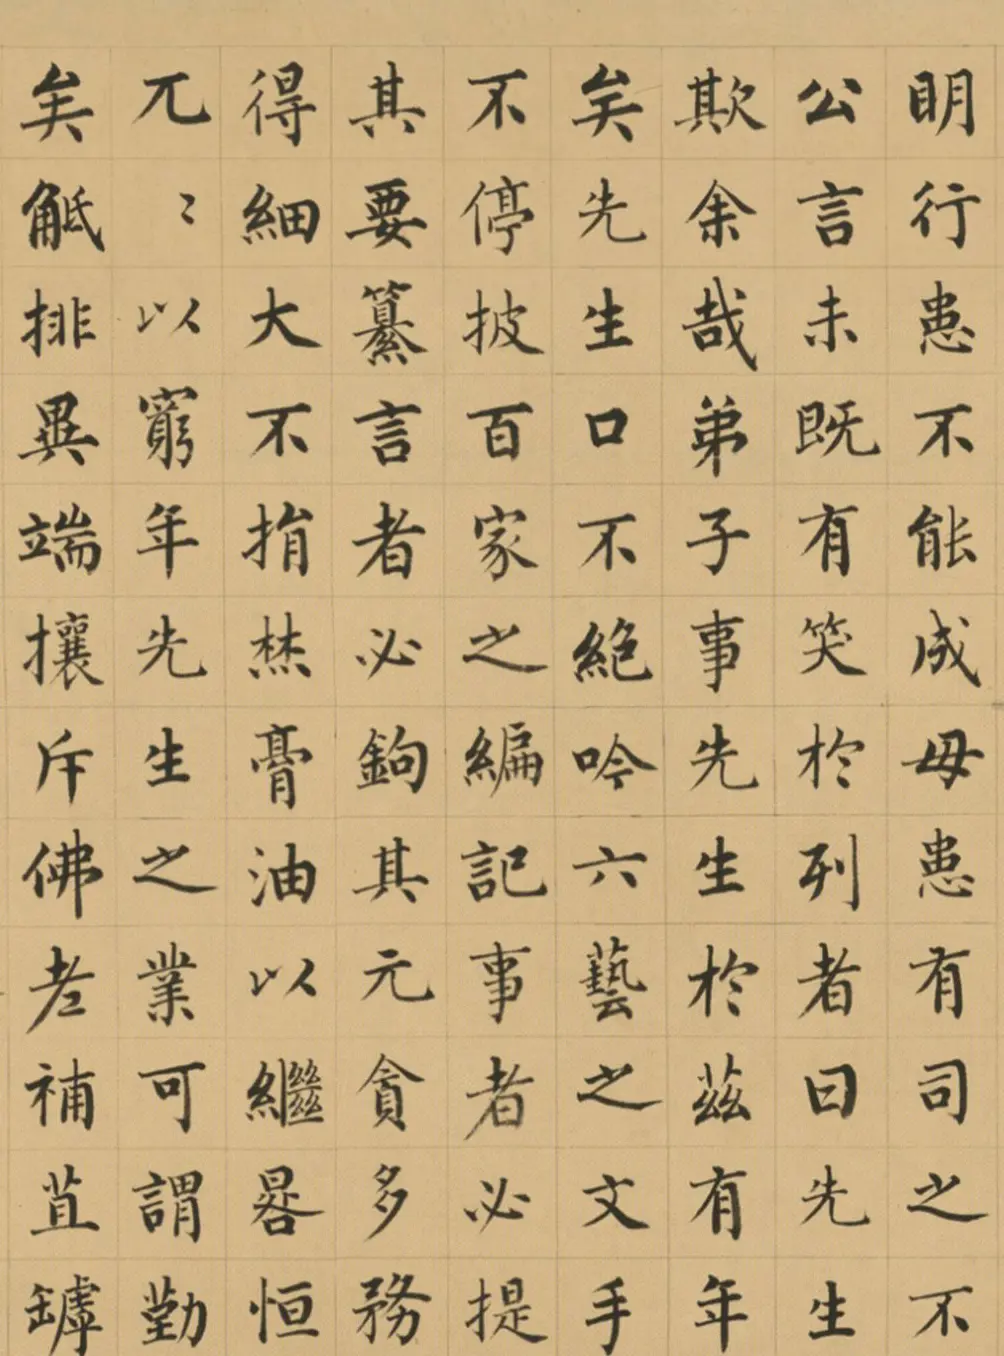 眀行患不能成毋患有司之不
公言未既有笑於列者曰先生
欺余哉弟子事先生於茲有年
矣先生口不絶吟六藝之文手
不停披百家之編記事者必提
其要纂言者必鉤其元貪多務
得細大不捐焚膏油以繼晷恒
兀〻以窮年先生之業可謂勤
矣觝排異端攘斥佛老補苴罅